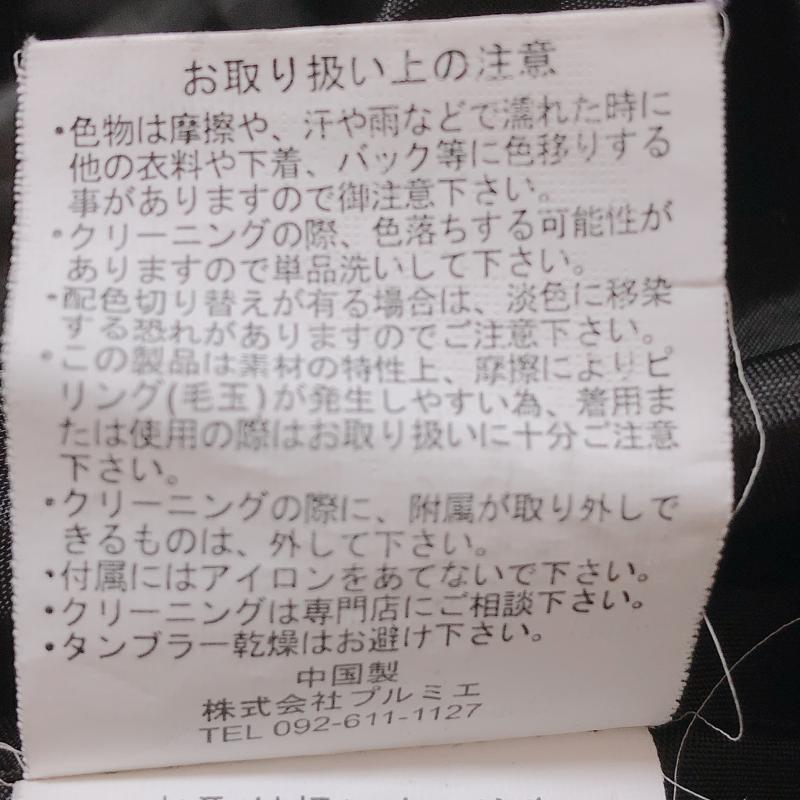 お取り扱い上の注意
・色物は摩擦や、汗や雨などで濡れた時に
他の衣料や下着、バック等に色移りする
事がありますので御注意下さい。
・クリーニングの際、色落ちする可能性が
ありますので単品洗いして下さい。
・配色切り替えが有る場合は、淡色に移染
する恐れがありますのでご注意下さい。
・この製品は素材の特性上、摩擦によりピ
リング(毛玉)が発生しやすい為、着用ま
たは使用の際はお取り扱いに十分ご注意
下さい。
・クリーニングの際に、附属が取り外しで
きるものは、外して下さい。
・付属にはアイロンをあてないで下さい。
・クリーニングは専門店にご相談下さい。
・タンブラー乾燥はお避け下さい。
中国製
株式会社プルミエ
TEL 092-611-1127